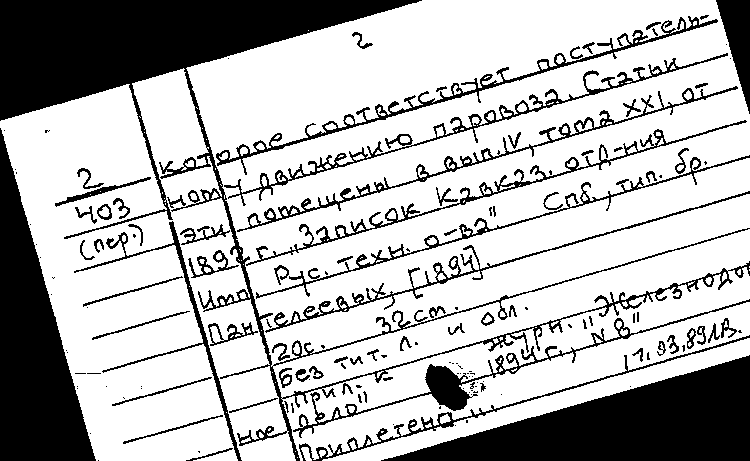 2
которое соответствует поступатель-
2 ному движению паровоза. Статьи
403 эти помещены в вып. IV, тома XXI, от
(пер.) 1892 г. „Записок Кавказ. отд-ния
Имп. Рус. техн. о-ва". Спб., тип. бр.
Пантелеевых, [1894].
20с. 32см.
Без тит. л. и обл.
„Прил. к журн. „Железнодорож-
ное дело" 1894 г., N 8"
Приплетено...